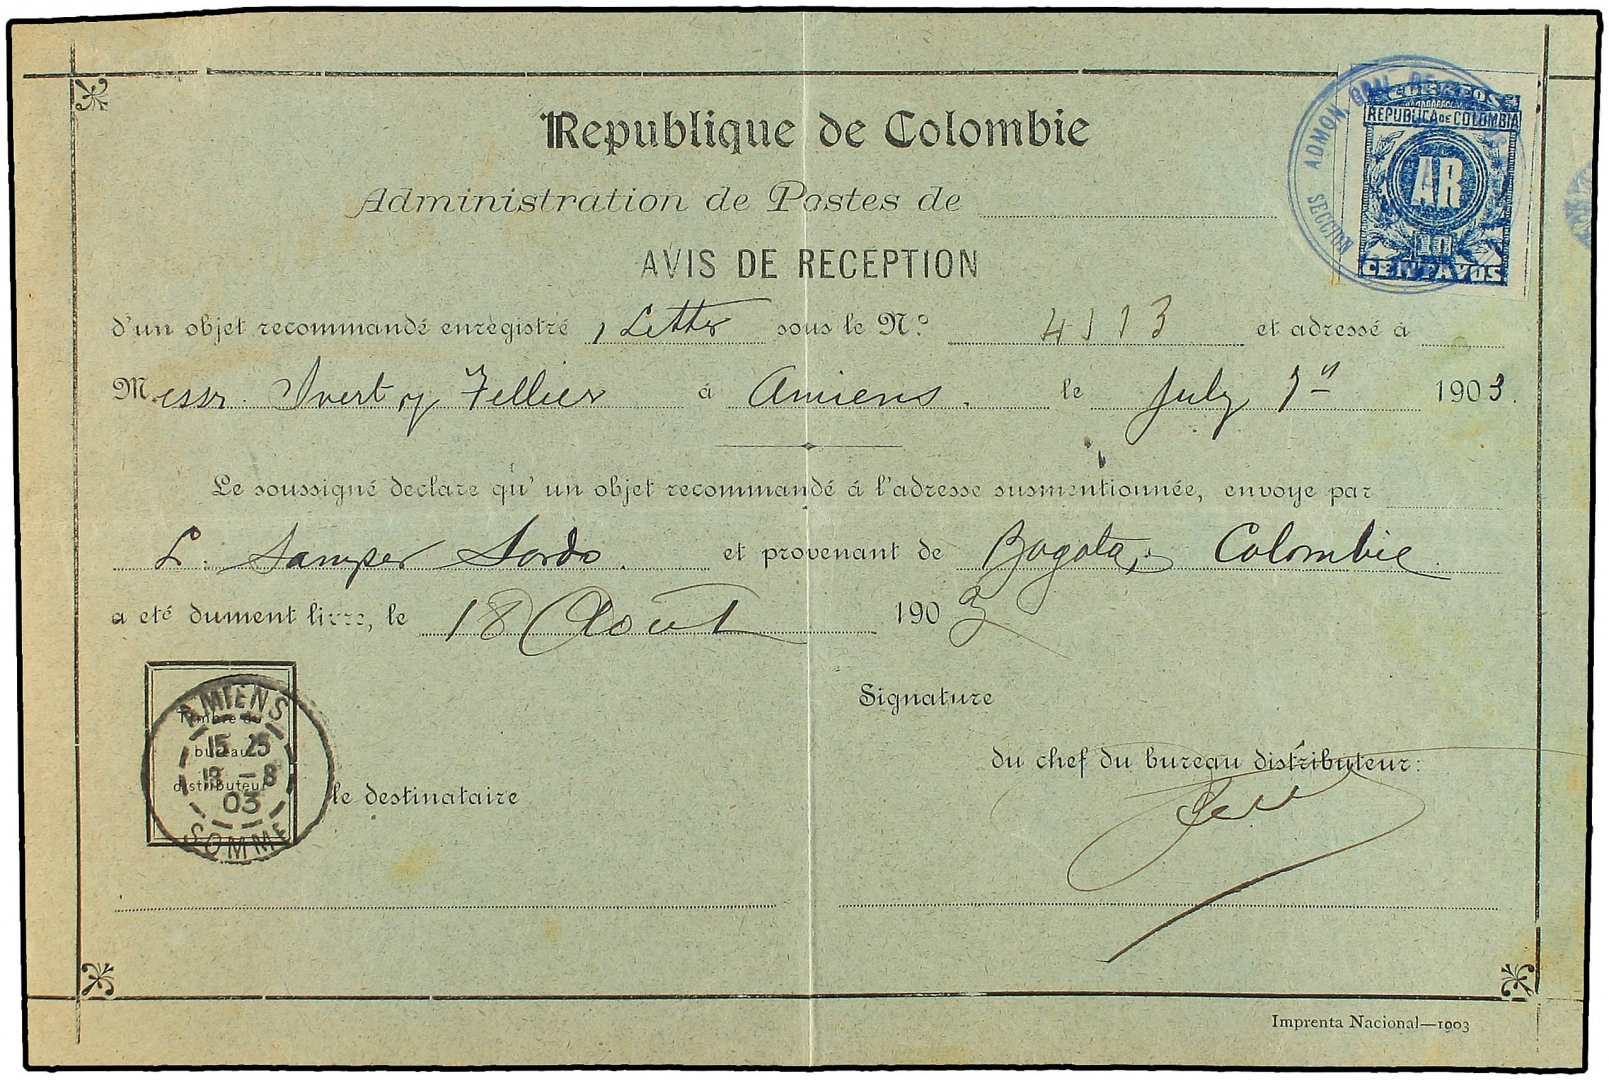 Republique de Colombie
Administration de Postes de
AVIS DE RECEPTION
d'un objet recommandé enregistré 1 Letter sous le N.o 4113 et adressé à
Messr. Ivert y Tellier à Amiens. le July 7" 1903.
Le soussigné declare qu'un objet recommandé á l'adresse susmentionnée, envoye par
L. Samper Sordo. et provenant de Bogota, Colombie.
a eté dument livre, le 18 Aout 1903
Signature
du chef du bureau distributeur:
le destinataire
Timbre du
bureau
distributeur
AMIENS
15 25
-8
03
SOMME
SECCION ADMON. GRAL DE
CORREOS
REPUBLICA DE COLOMBIA
AR
10
CENTAVOS
Imprenta Nacional—1903